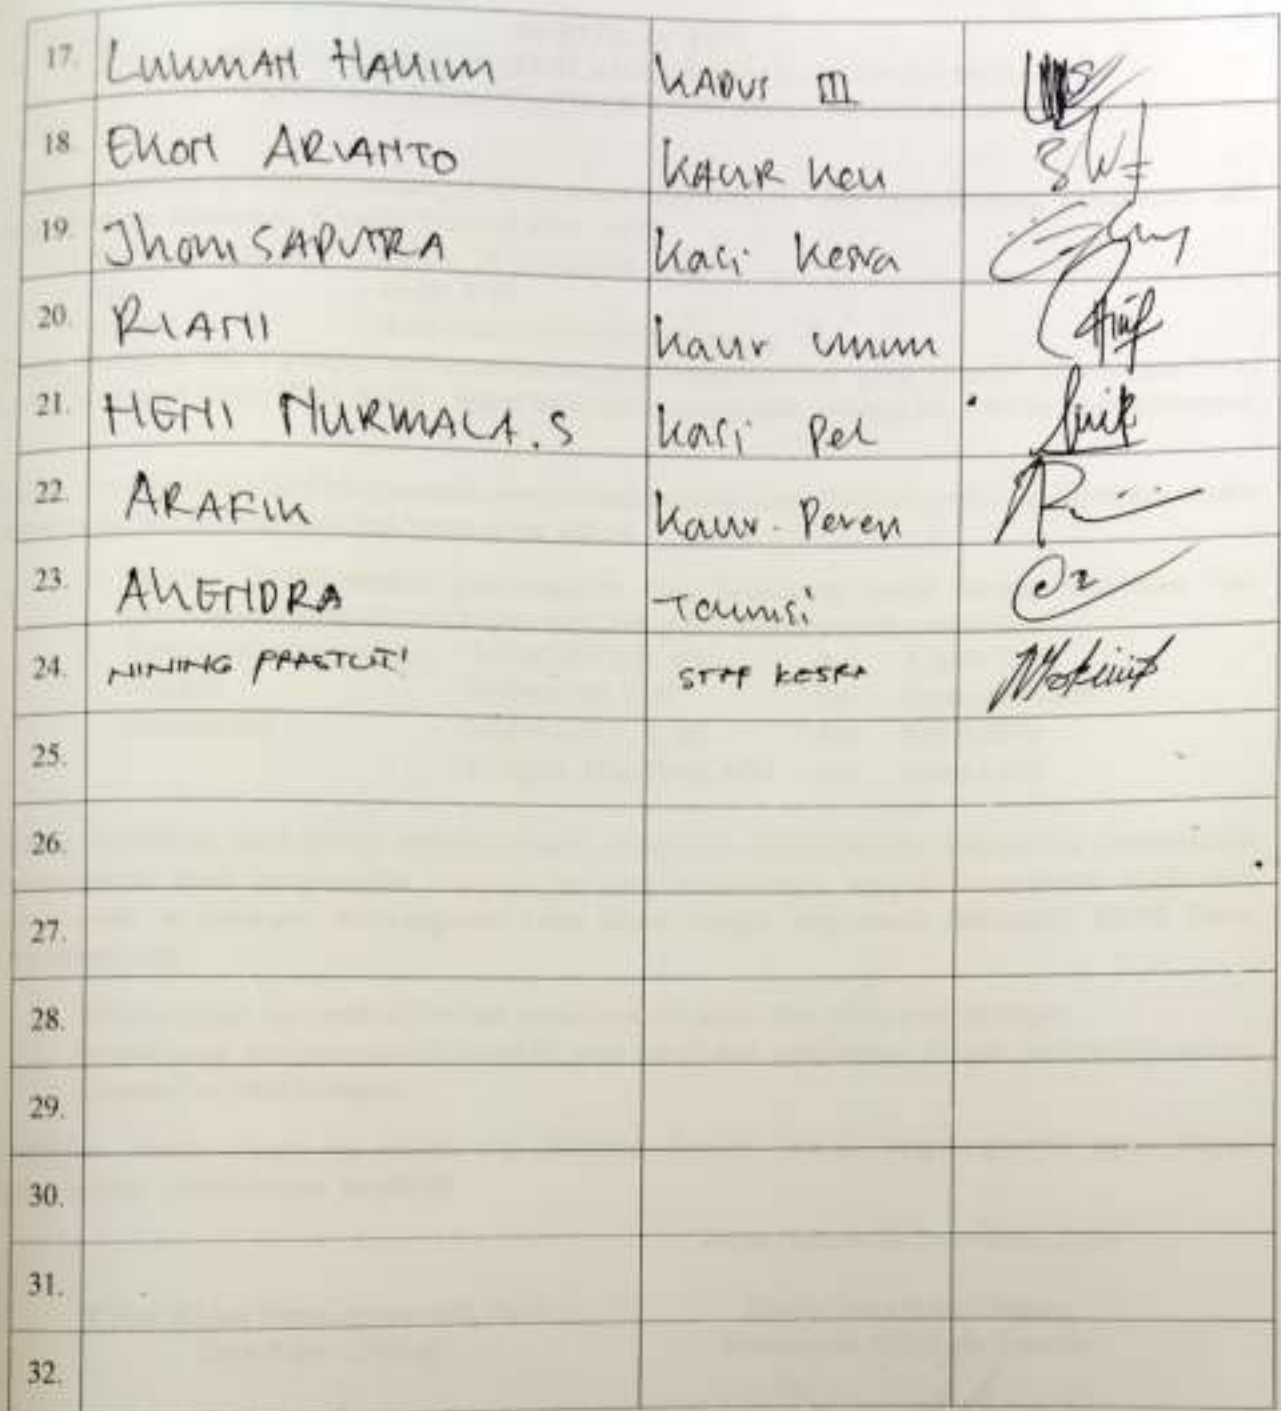 17. LUKMAN HAKIM KADUS III
18. EKON ARIANTO KAUR Keu
19. Jhoni SAPUTRA Kasi Kesra
20. RIANI Kaur Umum
21. HENI NURMALA.S Kasi Pel
22. ARAFIK Kaur. Peren
23. AKENDRA
24. NINING PRASTUTI STAF KESRA
25.
26.
27.
28.
29.
30.
31.
32.